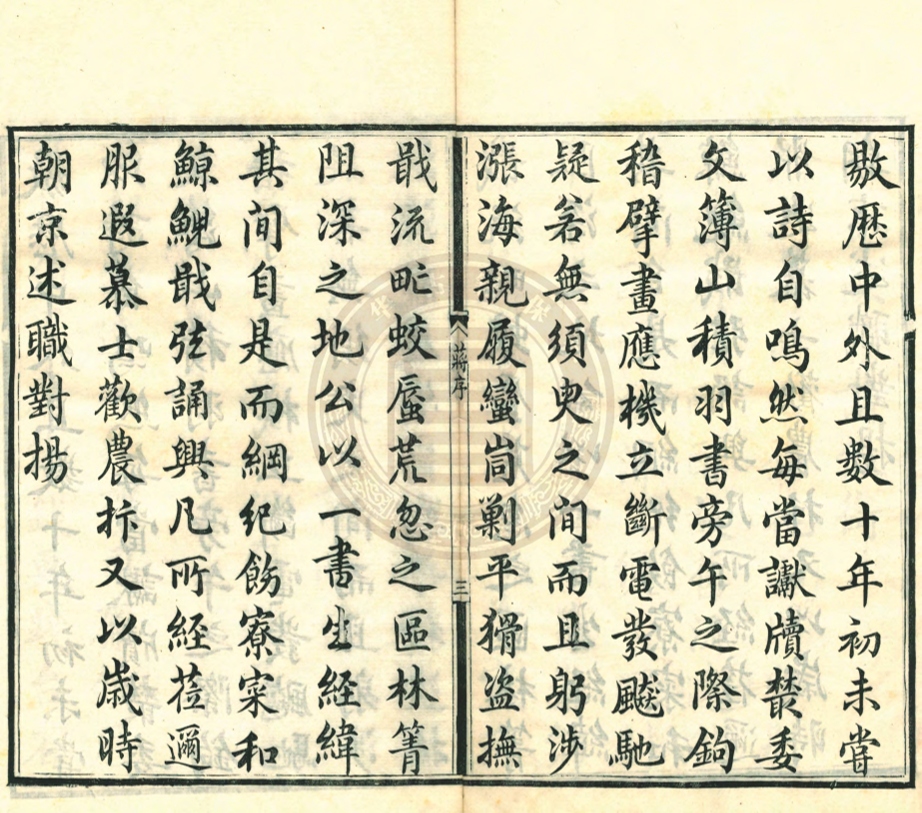 敭歷中外且數十年初未嘗
以詩自鳴然每當讞牘叢委
文簿山積羽書旁午之際鉤
稽擘畫應機立斷電發飈馳
疑若無須臾之間而且躬涉
漲海親履蠻峝剿平猾盜撫
蔣序
三
戢流甿蛟蜃荒忽之區林箐
阻深之地公以一書生經緯
其間自是而綱紀飭寮寀和
鯨鯢戢弦誦興凡所經蒞邇
服遐慕士歡農抃又以歲時
朝京述職對揚